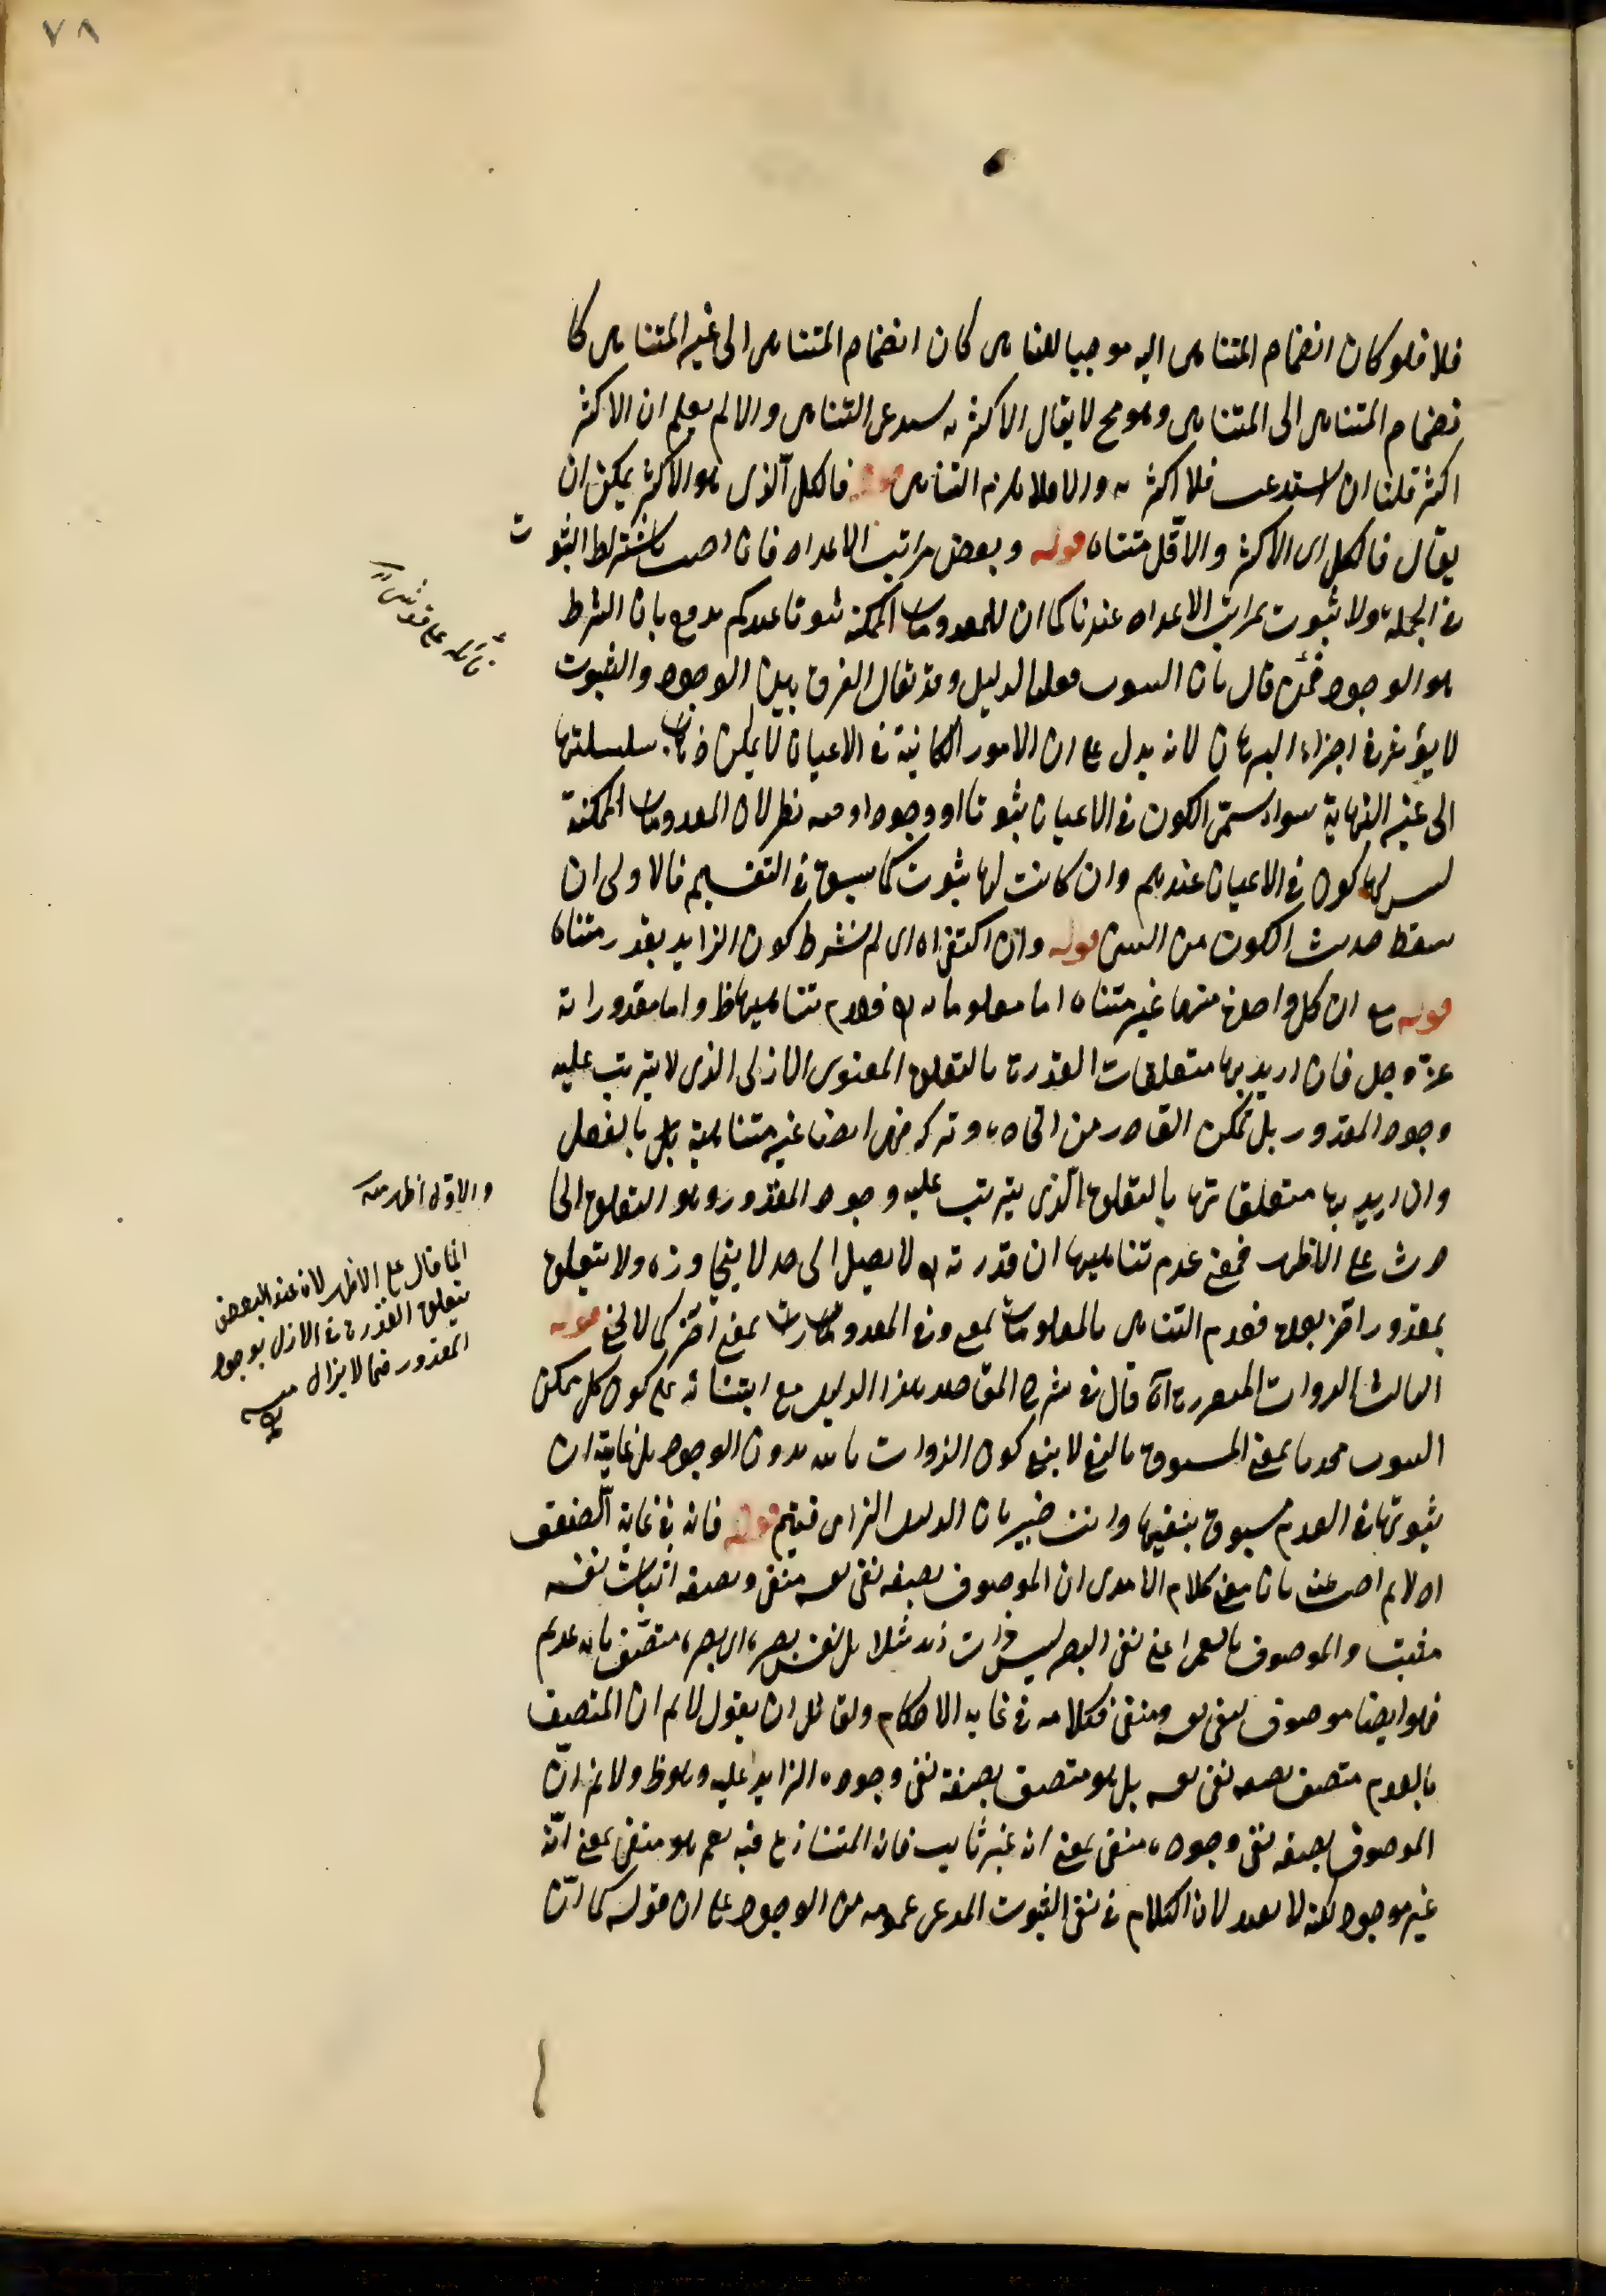 ٧٨
فلا فلو كان انضمام المتناهى اليه موجبا للتناهى كان انضمام المتناهى الى غير المتناهى كا
نضمام المتناهى الى المتناهى وهو مح لا يقال الاكثرية يستدعى التناهى والا لم يعلم ان الاكثر
اكثر قلنا ان استدعت فلا اكثرية والا فلا يلزم التناهى قوله فالكل الذى هو الاكثر يمكن ان
يقال فالكل اى الاكثر والاقل متناه قوله وبعض مراتب الاعداد فان اجيب باشتراط الثبوت
فى الجملة ولا ثبوت لمراتب الاعداد عندنا كما ان للمعدومات الممكنة ثبوتا عندكم مدفوع بان الشرط
هو الوجود فمن قال بان الثبوت فعليه الدليل وقد يقال الفرق بين الوجود والثبوت
لا يؤثر فى اجزاء البرهان لانه يدل على ان الامور الكائنة فى الاعيان لا يمكن ذهاب سلسلتها
الى غير النهاية سواء سمى الكون فى الاعيان ثبوتا او وجودا وفيه نظر لان المعدومات الممكنة
ليس لها كون فى الاعيان عندهم وان كانت لها ثبوت كما سبق فى التقسيم فالاولى ان
يسقط حديث الكون من البين قوله وان اكتفى اه اى لم يشترط كون الزايد بقدر متناه
قوله مع ان كل واحدة منهما غير متناه اما معلوماته تع فعدم تناهيها ظ واما مقدوراته
عز وجل فان اريد بها متعلقات القدرة بالتعلق المعنوى الازلى الذى لا يترتب عليه
وجود المقدور بل تمكن القادر من ايجاده وتركه فهى ايضا غير متناهية بل بالفعل
وان اريد بها متعلقاتها بالتعلق الذى يترتب عليه وجود المقدور وهو التعلق الحا
دث على الاظهر فمعنى عدم تناهيها ان قدرته تع لا يصل الى حد لا يتجاوزه ولا يتعلق
بمقدور آخر بعده فعدم التناهى بالمعلومات بمعنى وفى المقدورات بمعنى آخر كما لا يخفى قوله
الثالث الذوات المتقررة آه قال فى شرح المقاصد هذا الدليل مع ابتنائه على كون كل ممكن
الثبوت محدثا بمعنى المسبوق بالنفى لا ينفى كون الذوات ثابتة بدون الوجود بل غايته ان
ثبوتها فى العدم مسبوق بنفيها وانت خبير بان الدليل الزامى فيتم قوله فانه فى غاية الضعف
اه لا يم اجيب عنه بان معنى كلام الآمدى ان الموصوف بصفة نفى نفسه منفى وبصفة اثبات نفسه
مثبت والموصوف بالعمى اعنى نفى البصر ليس ذات زيد مثلا بل نفس بصره اى بصره متصف بانه عدم
فهو ايضا موصوف بنفى نفسه ومنفى فكلامه فى غاية الاحكام ولقائل ان يقول لا نم ان المتصف
بالعدم متصف بصفة نفى نفسه بل هو متصف بصفة نفى وجوده الزايد عليه وهو ظ ولا نم ان
الموصوف بصفة نفى وجوده منفى بمعنى انه غير ثابت فانه المتنازع فيه نعم هو منفى بمعنى انه
غير موجود لكنه لا يفيد لان الكلام فى نفى الثبوت المدعى عمومه من الوجود على ان قوله كما ان
والاول اظهر منه
انما قال على الاظهر لان عند البعض
يتعلق القدرة فى الازل بوجود
المقدور فيما لا يزال منه